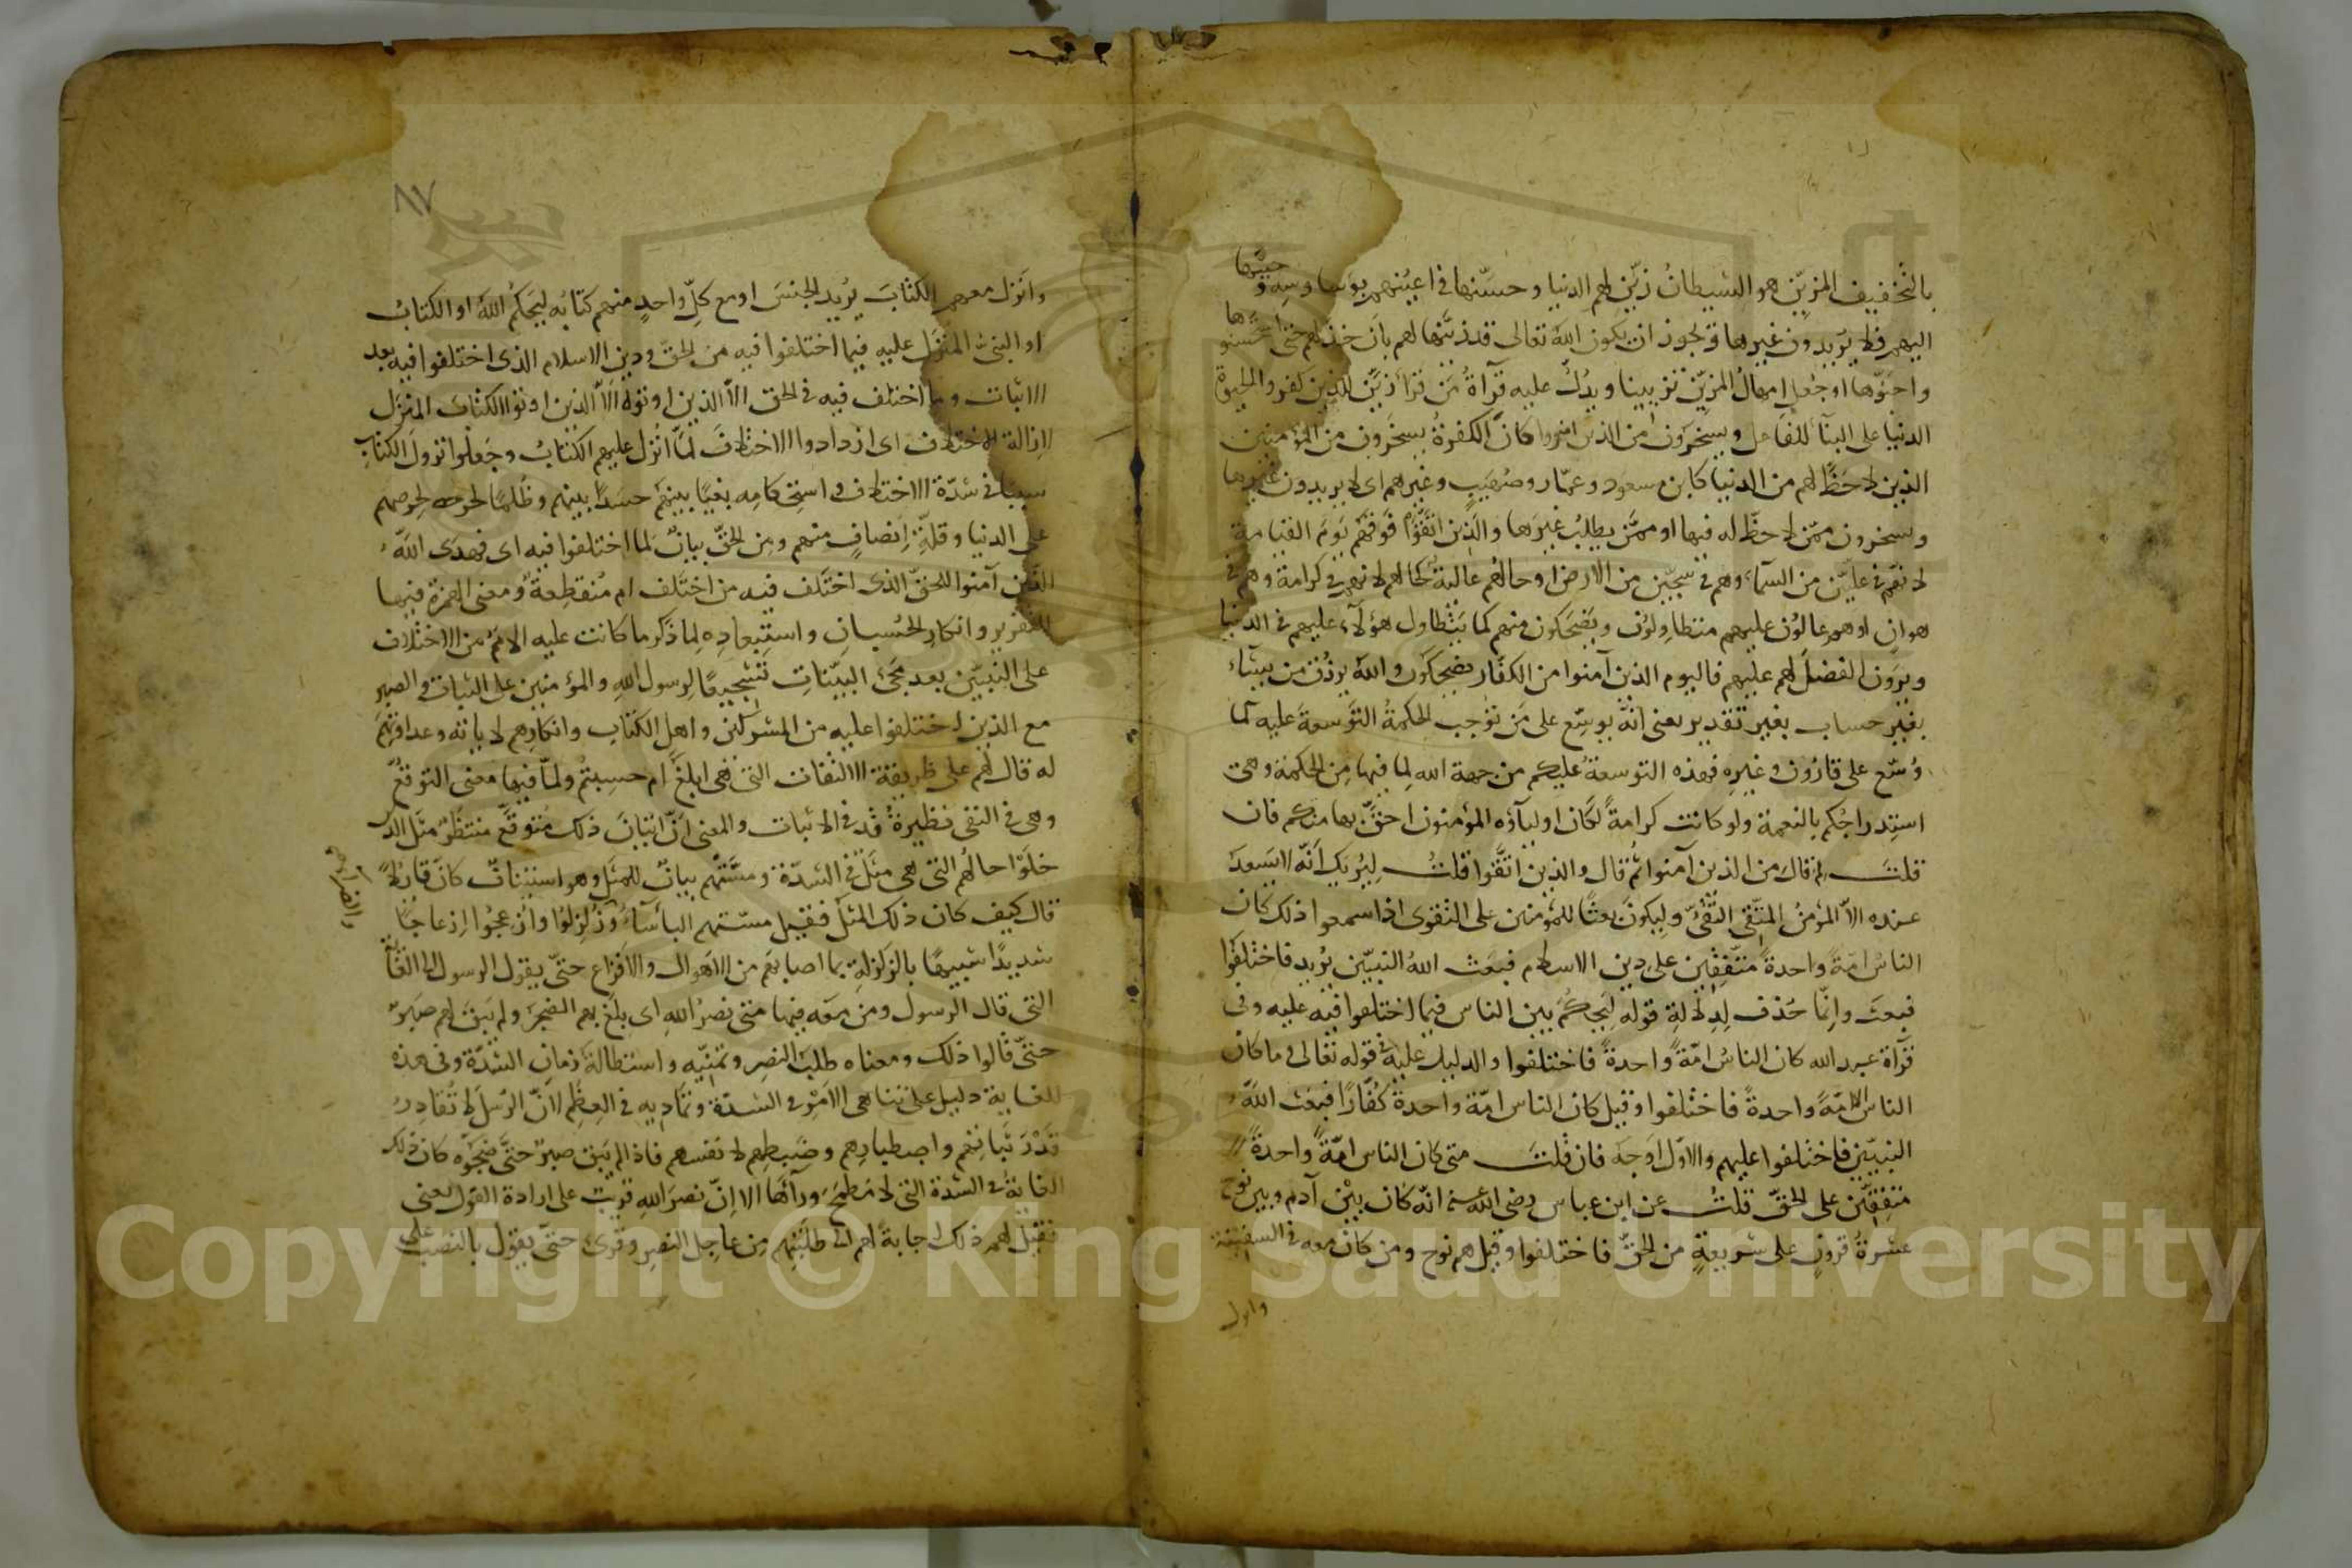 بالتخفيف المزيّن هو الشيطان زيّن لهم الدنيا وحسّنها في اعينهم بوساوسه وحبّبها
اليهم فلا يريدون غيرها ويجوز ان يكون الله تعالى قد زيّنها لهم بان خذلهم حتى استحسنوها
واحبّوها او جعل امهال المزيّن تزيينا ويدلّ عليه قرآة من قرأ زيّن للذين كفروا الحيوة
الدنيا على البنآ للفاعل ويسخرون من الذين امنوا كان الكفرة يسخرون من المؤمنين
الذين لا حظّ لهم من الدنيا كابن مسعود وعمّار وصهيب وغيرهم اى لا يريدون غيرها
ويسخرون ممّن لا حظّ له فيها او ممّن يطلب غيرها والذين اتّقوا فوقهم يوم القيامة
لانهم في علّيّين من السمآء وهم في سجّين من الارض او حالهم عالية لحالهم لانهم في كرامة وهم في
هوان او هم عالون عليهم متطاولون ويضحكون منهم كما يتطاول هؤلآء عليهم في الدنيا
ويرون الفضل لهم عليهم فاليوم الذين آمنوا من الكفّار يضحكون والله يرزق من يشآء
بغير حساب بغير تقدير يعني انّه يوسّع على من توجب الحكمة التوسعة عليه كما
وسّع على قارون وغيره فهذه التوسعة عليكم من جهة الله لما فيها من الحكمة وهي
استدراجكم بالنعمة ولو كانت كرامة لكان اولياؤه المؤمنون احقّ بها منكم فان
قلت لم قال من الذين آمنوا ثم قال والذين اتّقوا قلت ليريك انّه لا يسعد
عنده الاّ المؤمن المتّقي التقيّ وليكون بعثا للمؤمنين على التقوى اذا سمعوا ذلك كان
الناس امّة واحدة متّفقين على دين الاسلام فبعث الله النبيّين يريد فاختلفوا
فبعث وانّما حذف لدلالة قوله ليحكم بين الناس فيما اختلفوا فيه عليه وفي
قرآة عبد الله كان الناس امّة واحدة فاختلفوا والدليل عليه قوله تعالى وما كان
الناس الا امّة واحدة فاختلفوا وقيل كان الناس امّة واحدة كفّارا فبعث الله
النبيّين فاختلفوا عليهم والاوّل اوجه فان قلت متى كان الناس امّة واحدة
متّفقين على الحقّ قلت عن ابن عباس رضى الله عنه انّه كان بين آدم وبين نوح
عشرة قرون على شريعة من الحقّ فاختلفوا وقيل هم نوح ومن كان معه في السفينة
وانزل
٨٧
وانزل معهم الكتاب يريد الجنس او مع كلّ واحد منهم كتابه ليحكم الله او الكتاب
او النبىّ المنزل عليه فيما اختلفوا فيه من الحقّ ودين الاسلام الذى اختلفوا فيه بعد
الاتفاق وما اختلف فيه في الحق الاّ الذين اوتوه الاّ الذين اوتوا الكتاب المنزل
لازالة الاختلاف اى ازدادوا الاختلاف لمّا انزل عليهم الكتاب وجعلوا نزول الكتاب
سببا في شدّة الاختلاف واستحكامه بغيا بينهم حسدا بينهم وظلما لحرصهم
على الدنيا وقلّة انصاف منهم ومن الحقّ بيان لما اختلفوا فيه اى فهدى الله
الذين آمنوا للحقّ الذى اختلف فيه من اختلف ام منقطعة ومعنى الهمزة فيها
للتقرير وانكار الحسبان واستبعاده لما ذكر ما كانت عليه الامم من الاختلاف
على النبيّين بعد مجئ البيّنات تشجيعا لرسول الله والمؤمنين على الثبات والصبر
مع الذين اختلفوا عليه من المشركين واهل الكتاب وانكارهم لاياته وعداوتهم
له قال لهم على طريقة الالتفات التى هى ابلغ ام حسبتم ولمّا فيها معنى التوقّع
وهى في النفى نظيرة قد في الاثبات والمعنى انّ اتيان ذلك متوقّع منتظر مثل الذين
خلوا حالهم التى هى مثل في الشدّة ومسّتهم بيان للمثل وهو استيناف كان قائلا
قال كيف كان ذلك المثل فقيل مسّتهم البأسآء والضرآء وزلزلوا وازعجوا ازعاجا
شديدا شبيها بالزلزلة بما اصابهم من الاهوال والافزاع حتّى يقول الرسول الى الغاية
التى قال الرسول ومن معه فيها متى نصر الله اى بلغ بهم الضجر ولم يبق لهم صبر
حتّى قالوا ذلك ومعناه طلب النصر وتمنّيه واستطالة زمان الشدّة وفي هذه
الغاية دليل على تناهى الامر في الشدّة وتماديه في العظم لانّ الرسل لا تقادر
قدر ثباتهم واصطبارهم وضبطهم لانفسهم فاذا لم يبق صبر حتّى ضجّوا كان ذلك
الغاية في الشدة التى لا مطمح ورآءها الا انّ نصر الله قريب على ارادة القول يعنى
فقيل لهم ذلك اجابة لهم الى طلبتهم من عاجل النصر وقرئ حتّى يقول بالنصب على
Copyright © King Saud University